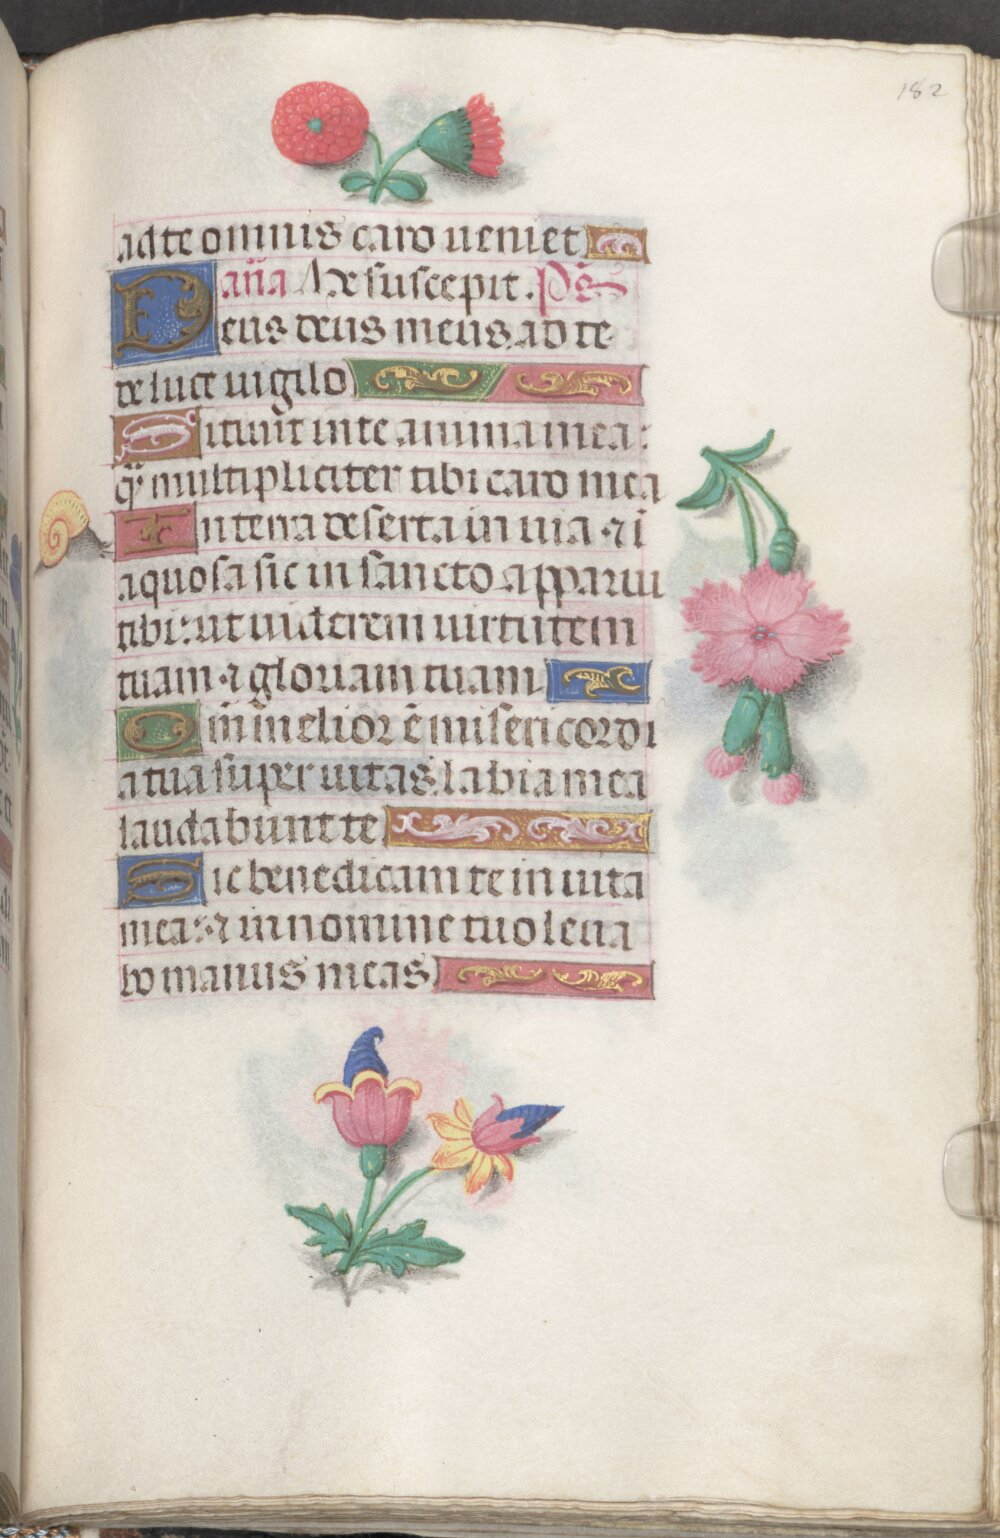 182
ad te omnis caro veniet
aña Me suscepit. Ps
Deus deus meus ad te
de luce vigilo
Sitivit in te anima mea:
q̃ multipliciter tibi caro mea
In terra deserta invia ⁊ i
aquosa sic in sancto apparui
tibi: ut viderem virtutem
tuam ⁊ gloriam tuam
Qm̃ melior ẽ misericordi
a tua super vitas labia mea
laudabunt te
Sic benedicam te in vita
mea: ⁊ in nomine tuo leva
bo manus meas